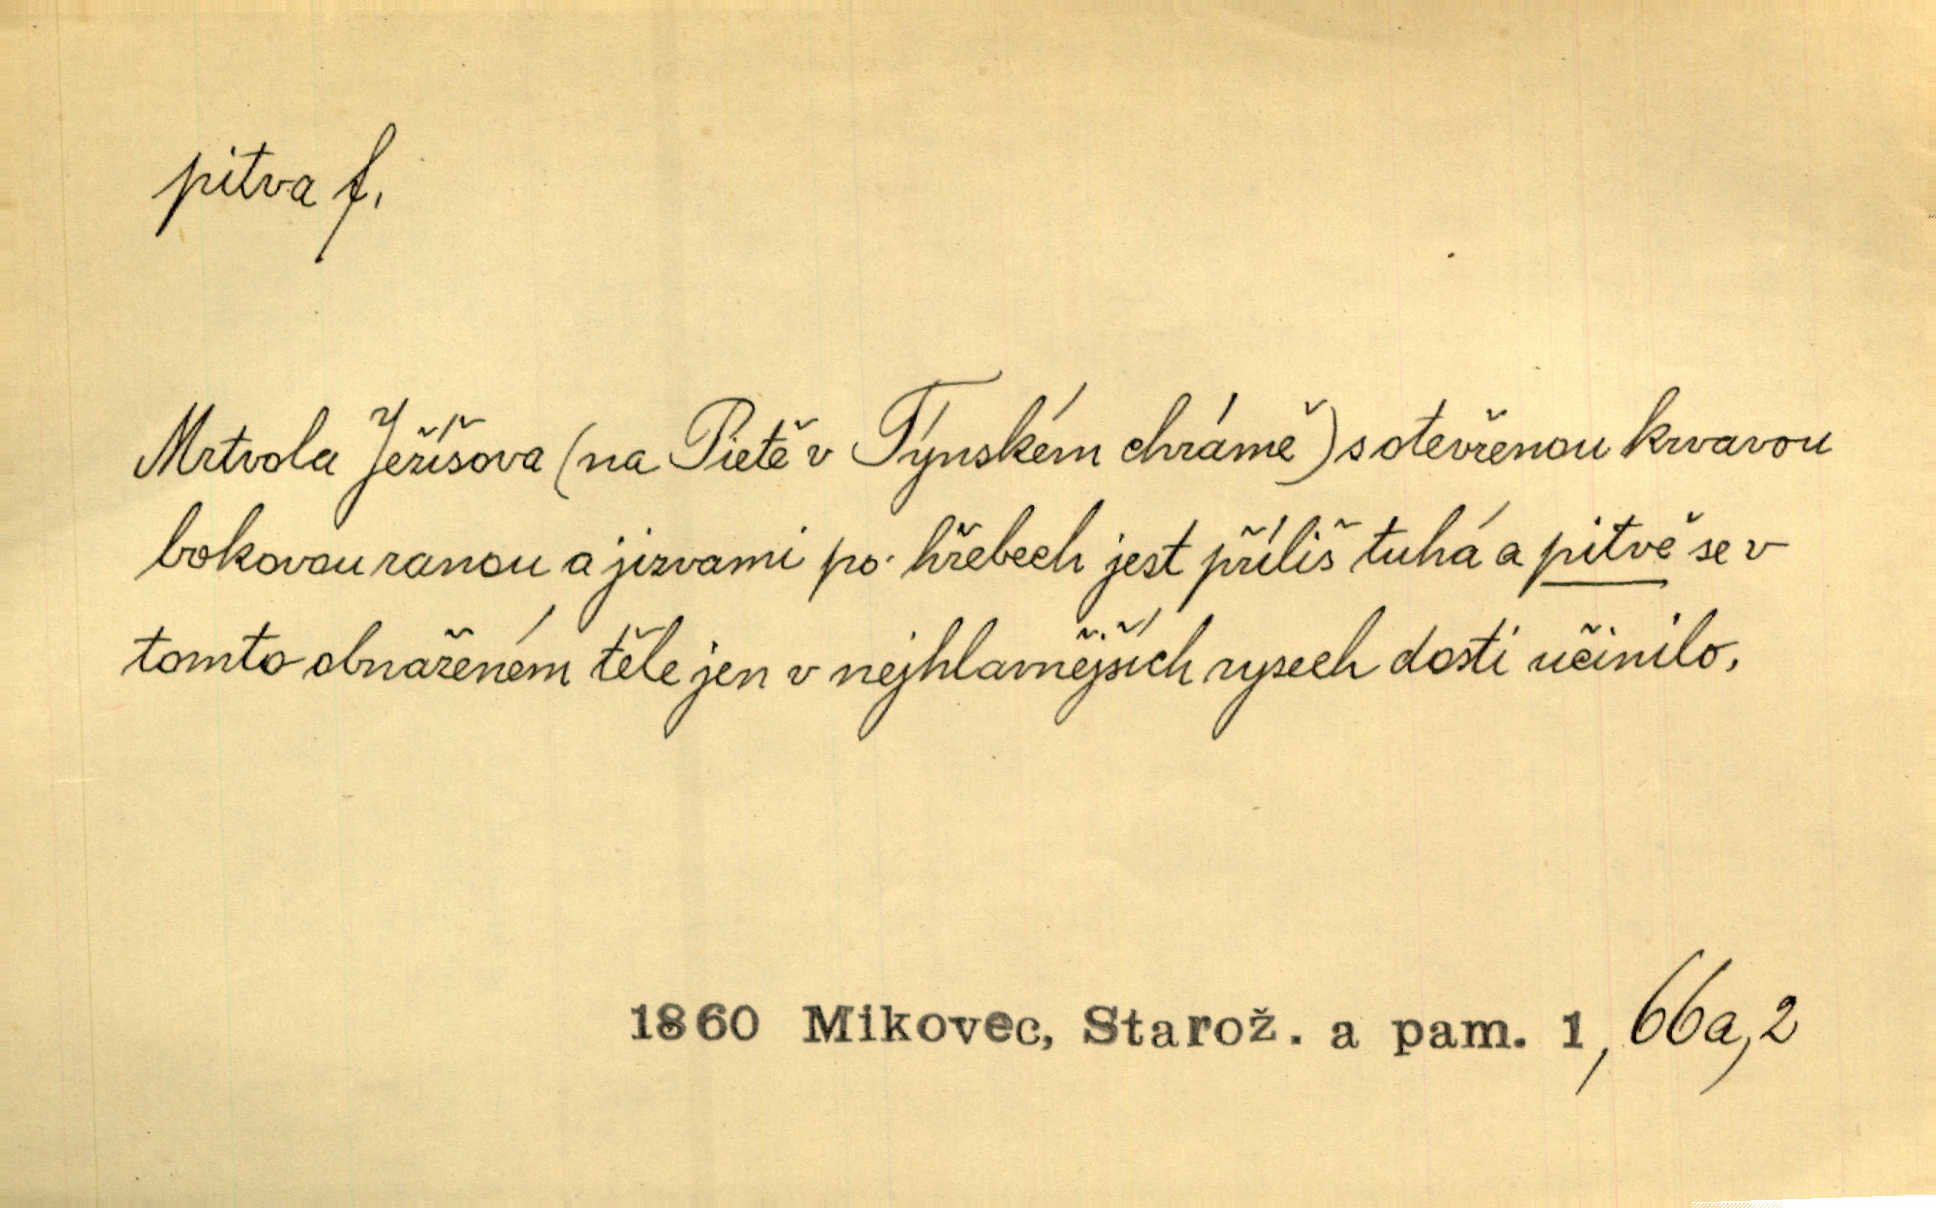 pitva f.
Mrtvola Ježíšova (na Pietě v Týnském chrámě) s otevřenou krvavou
bokovou ranou a jizvami po hřebech jest příliš tuhá a pitvě se v
tomto obnaženém těle jen v nejhlavnějších rysech dosti učinilo.
1860 Mikovec, Starož. a pam. 1, 66a,2